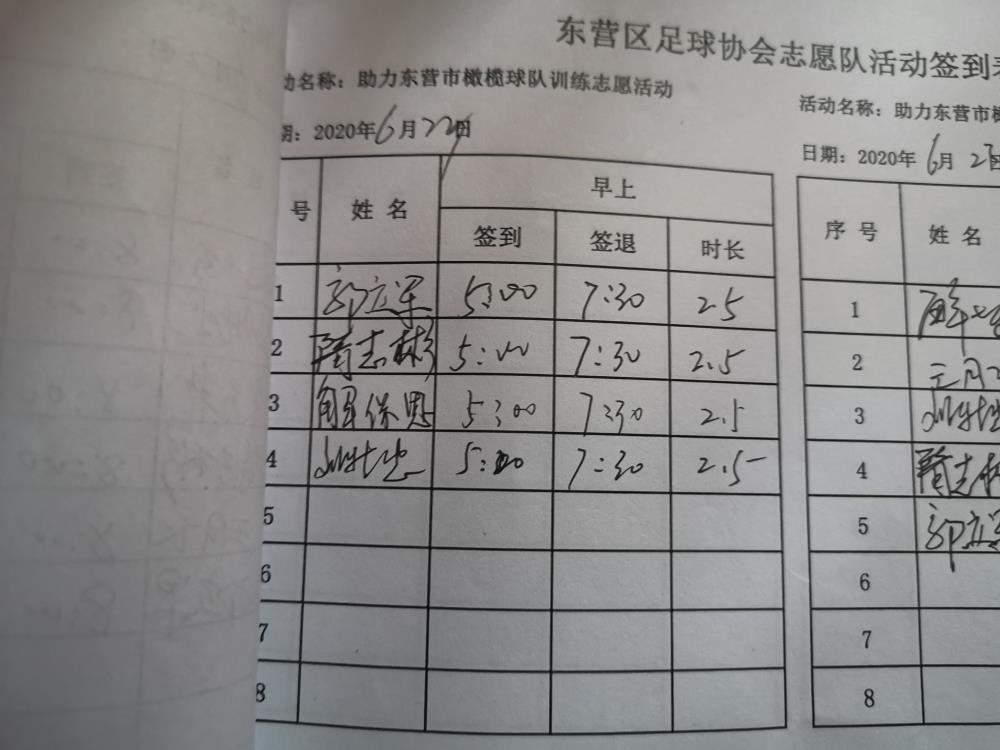 东营区足球协会志愿队活动签到
动名称：助力东营市橄榄球队训练志愿活动
期：2020年6月22日
号 姓 名 早上
签到 签退 时长
1 郭立军 5:00 7:30 2.5
2 隋志彬 5:00 7:30 2.5
3 解保恩 5:00 7:30 2.5
4 5:00 7:30 2.5
5
6
7
8
活动名称：助力东营市
日期：2020年 6月 23日
序 号 姓 名
1
2
3
4 隋志
5 郭立
6
7
8